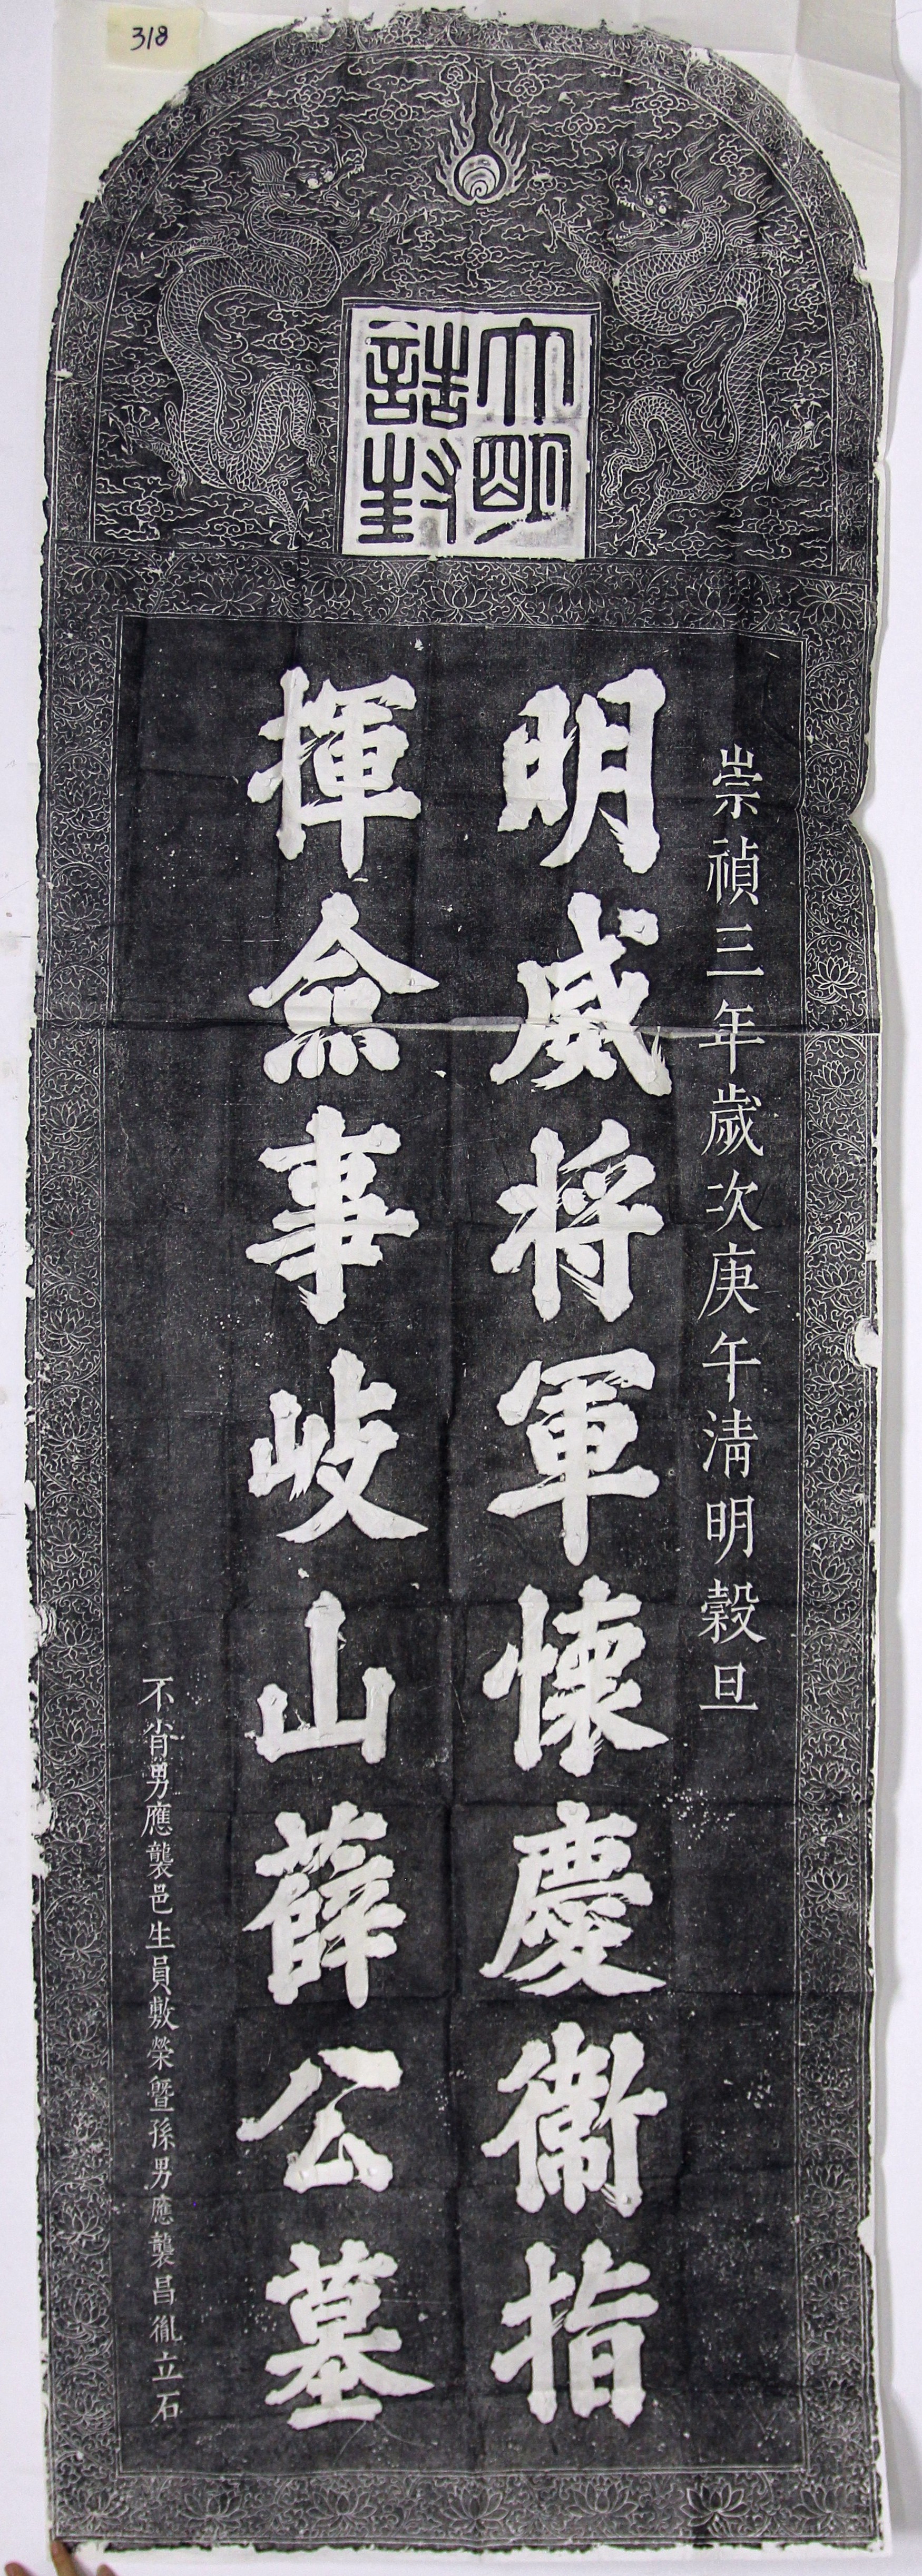 318
大明
誥封
崇禎三年歲次庚午清明穀旦
明威將軍懷慶衛指
揮僉事岐山薛公墓
不肖男應襲邑生員敷榮曁孫男應襲昌胤立石